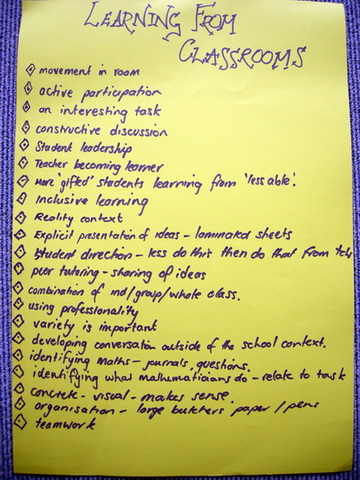 LEARNING FROM
CLASSROOMS
movement in room
active participation
an interesting task
constructive discussion
Student leadership
Teacher becoming learner
More 'gifted' students learning from 'less able'.
Inclusive learning
Reality context
Explicit presentation of ideas - laminated sheets
Student direction - less do this then do that from tch
peer tutoring - sharing of ideas
combination of ind/group/whole class.
using professionality
variety is important
developing conversation outside of the school context.
identifying maths - journals, questions,
identifying what mathematicians do - relate to task
concrete - visual - makes sense.
organisation - large butchers paper / pens
teamwork